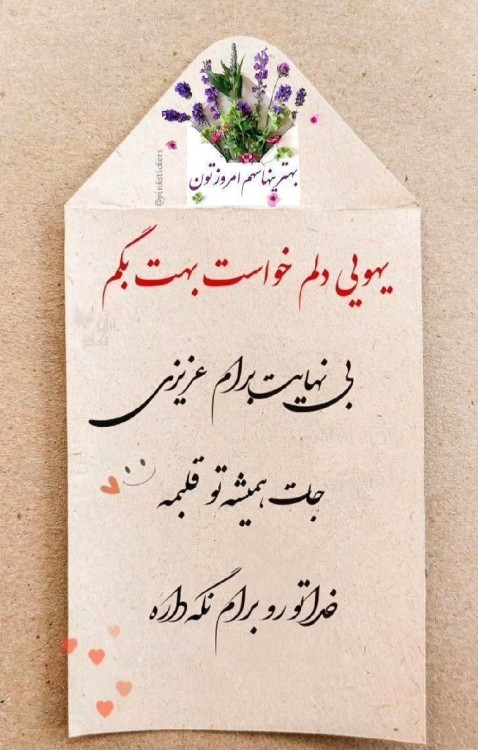 بهترینها سهم امروزتون
@pinkstickers
یهویی دلم خواست بهت بگم
بی نهایت برام عزیزی
جات همیشه تو قلبمه
خدا تو رو برام نگه داره